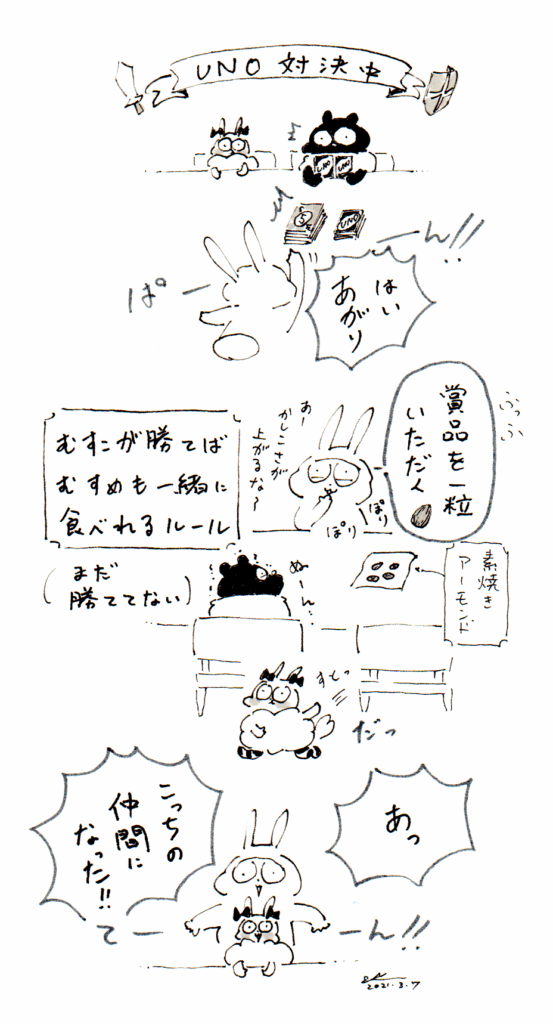 UNO対決中
♪
UNO
UNO
5
UNO
ぱー
ーん!!
はい
あがり
賞品を一粒
いただく
ふっふ
あー
かしこさが
上がるな〜
ぽり
ぽり
むすこが勝てば
むすめも一緒に
食べれるルール
(まだ
勝ててない)
ぬーん…
素焼き
アーモンド
すくっ
だっ
あっ
こっちの
仲間に
なった!!
てー
ーん!!
2021.3.7